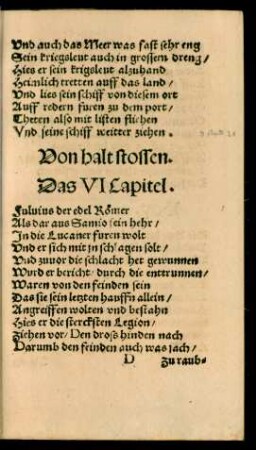 Vnd auch das Meer was fast sehr eng
Sein kriegsleut auch in grossem dreng/
Hies er sein krigsleut alzuhand
Heimlich tretten auff das land/
Vnd lies sein schiff von diesem ort
Auff redern furen zu dem port/
Theten also mit listen fliehen
Vnd seine schiff weitter ziehen.
Von halt stossen.
Das VI Capitel.
Fuluius der edel Römer
Als dar aus Samio sein hehr/
In die Lucaner furen wolt
Vnd er sich mit jn schlagen solt/
Vnd zuuor die schlacht het gewunnen
Wurd er bericht durch die enttrunnen/
Waren von den feinden sein
Das sie sein letzten hauffn allein/
Angreiffen wolten vnd bestahn
Hies er die stercksten Legion/
Ziehen vor/ Den drosß hinden nach
Darumb den feinden auch was jach/
D zu raub-